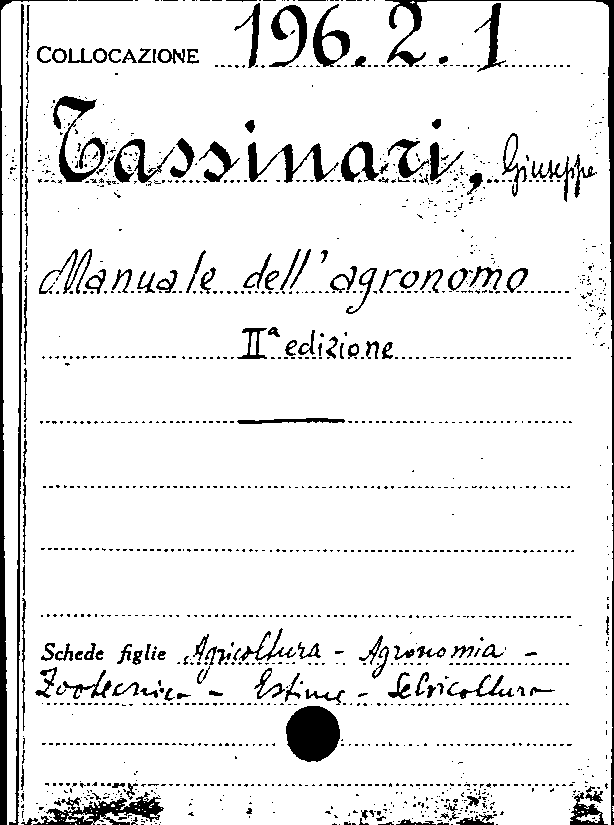 COLLOCAZIONE 196.2.1
Tassinari, Giuseppe
Manuale dell'agronomo
IIª edizione
Schede figlie Agricoltura - Agronomia -
Zootecnica - Estimo - Selvicoltura